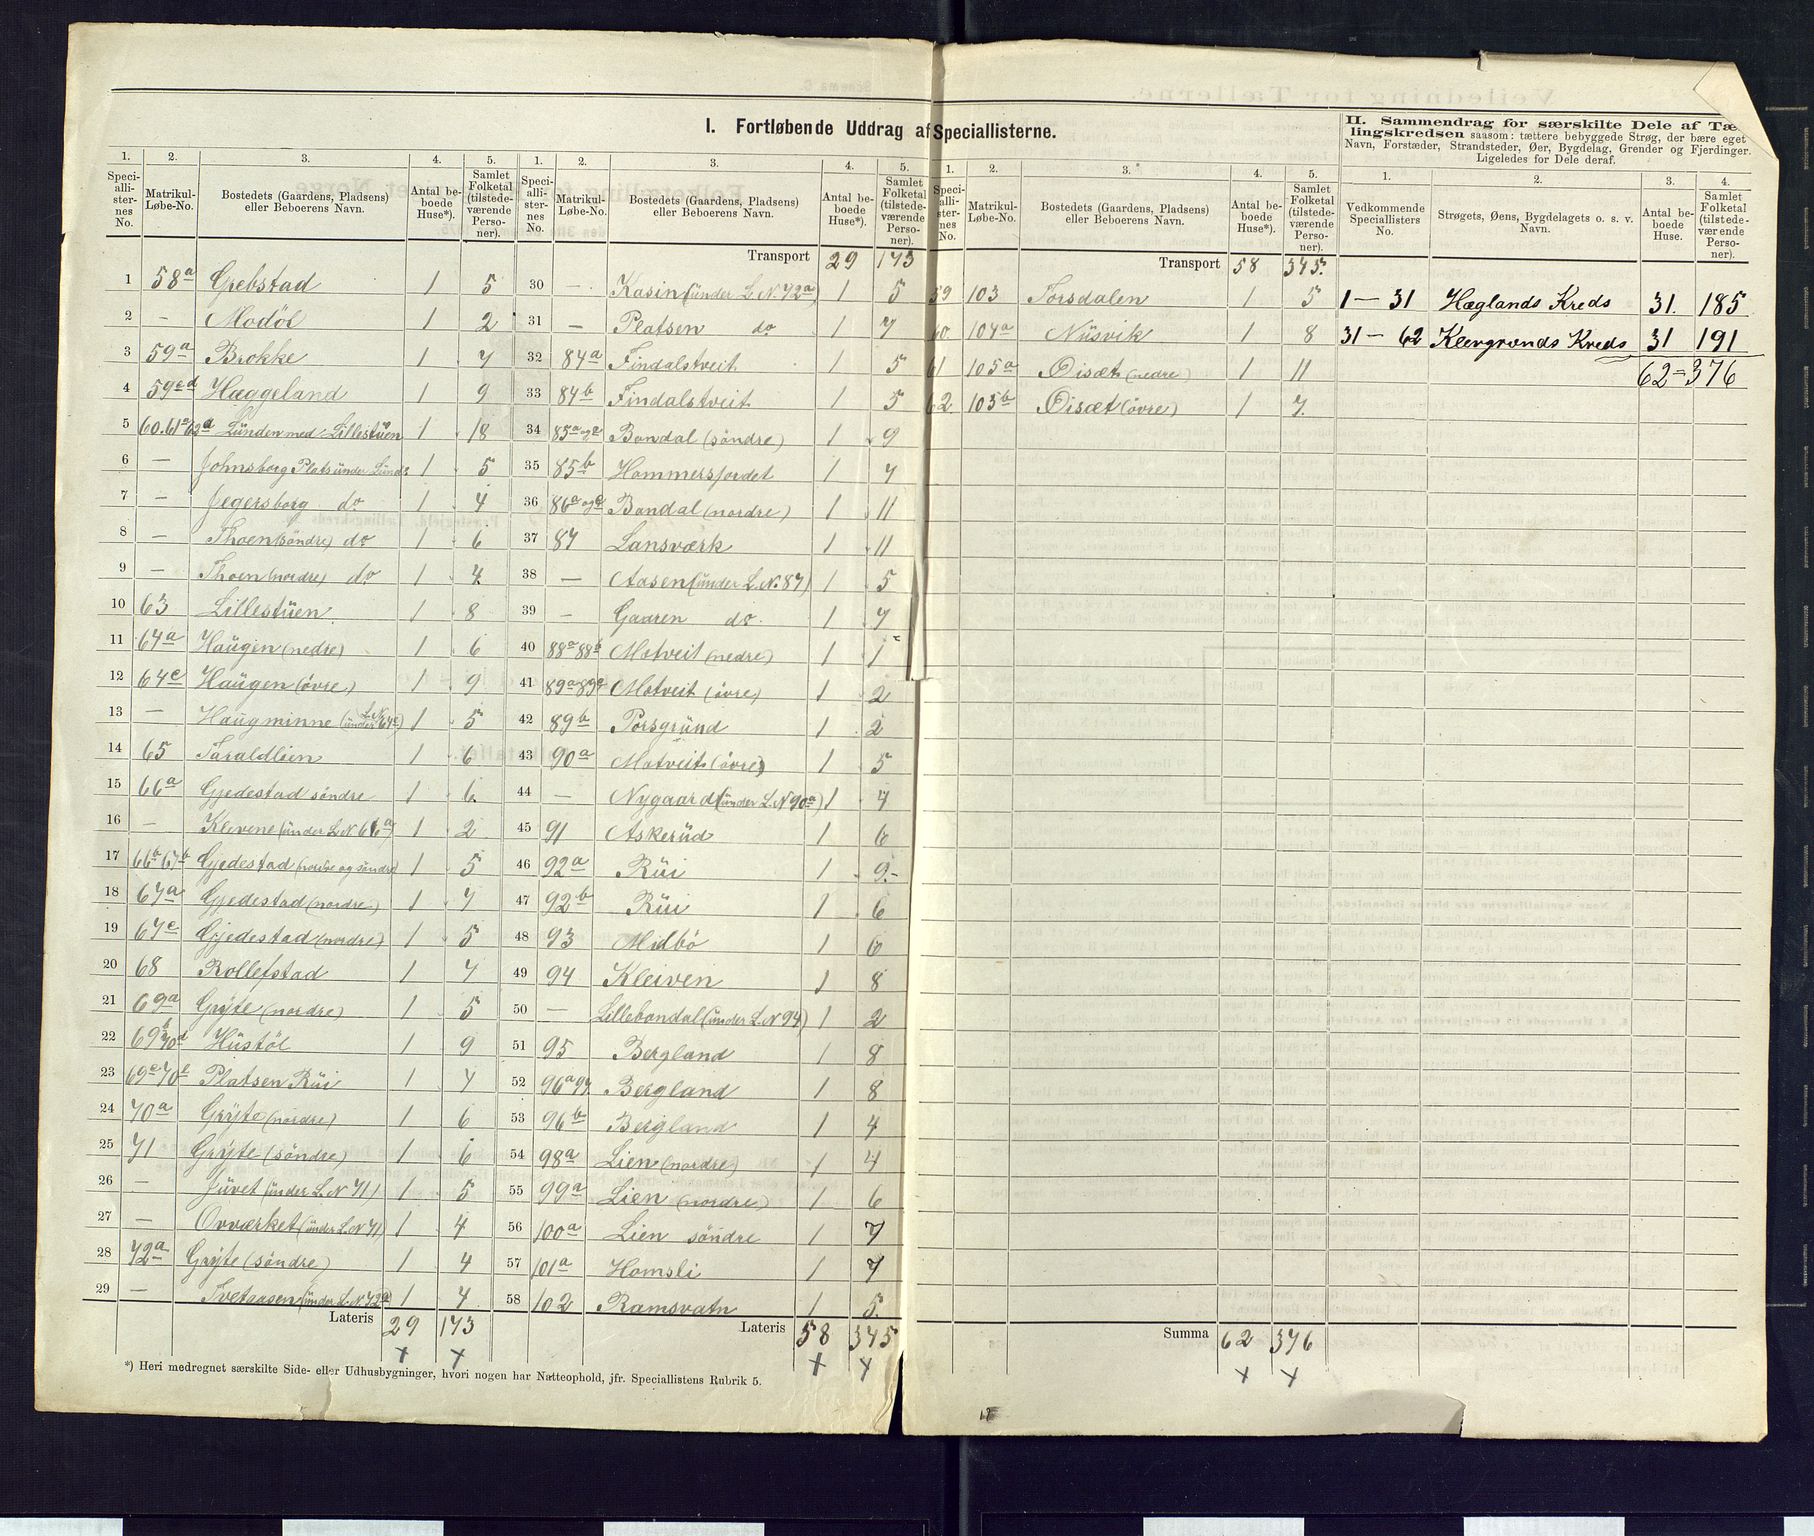 I. Fortløbende Uddrag af Speciallisterne.
1. 2. 3. 4. 5.
Speciallisternes No. Matrikul-Løbe-No. Bostedets (Gaardens, Pladsens) eller Beboerens Navn. Antal beboede Huse*). Samlet Folketal (tilstedeværende Personer).
1 58a Grebstad 1 5
2 — Modöl 1 2
3 59a Brokke 1 7
4 59cd Hæggeland 1 9
5 60.61a62a Lunden med Lillestuen 1 18
6 — Johnsborg Plats under Lund 1 5
7 — Jegersborg do 1 4
8 — Thoen (söndre) do 1 6
9 — Thoen (nordre) do 1 4
10 63 Lillestuen 1 8
11 64a Haugen (nedre) 1 6
12 64c Haugen (övre) 1 9
13 — Haugminne (under L.N. 64c) 1 5
14 65 Taraldlien 1 6
15 66a Gjedestad söndre 1 6
16 — Klevene (under L.N 66a) 1 2
17 66b 67b Gjedestad (nordre og söndre) 1 5
18 67a Gjedestad (nordre) 1 7
19 67c Gjedestad (nordre) 1 5
20 68 Rollefstad 1 7
21 69a Gryte (nordre) 1 5
22 69b 70d Hustöl 1 9
23 69c 70e Platsen Rui 1 7
24 70a Gryte (nordre) 1 6
25 71 Gryte (söndre) 1 6
26 — Juvet (under L.N 71) 1 5
27 — Ovværket (under L.N 71) 1 4
28 72a Gryte (söndre) 1 4
29 — Tvetaasen (under L.N 72a) 1 7
Lateris 29 173
1. 2. 3. 4. 5.
Speciallisternes No. Matrikul-Løbe-No. Bostedets (Gaardens, Pladsens) eller Beboerens Navn. Antal beboede Huse*). Samlet Folketal (tilstedeværende Personer).
Transport 29 173
30 — Kasin (under L.N. 72a) 1 5
31 — Platsen do 1 7
32 84a Findalstveit 1 5
33 84b Findalstveit 1 5
34 85a Bandal (söndre) 1 9
35 85b Hommersfordet 1 7
36 86a og Bandal (nordre) 1 11
37 87 Lansværk 1 11
38 — Aasen (under L.N. 87) 1 5
39 — Gaaren do 1 7
40 88a 88b Motveit (nedre) 1 1
41 89a 89c Motveit (övre) 1 2
42 89b Porsgrund 1 2
43 90a Motveit (övre) 1 5
44 — Nygaard (under L.N 90a) 1 7
45 91 Askerud 1 6
46 92a Rui 1 9
47 92b Rui 1 6
48 93 Midbö 1 6
49 94 Kleiven 1 8
50 — Lillebandal (under L.N 94) 1 2
51 95 Bergland 1 8
52 96a 97 Bergland 1 8
53 96b Bergland 1 4
54 98a Lien (nordre) 1 4
55 99a Lien (nordre) 1 6
56 100a Lien söndre 1 7
57 101a Homsli 1 7
58 102 Ramsvatn 1 5
Lateris 58 345
1. 2. 3. 4. 5.
Speciallisternes No. Matrikul-Løbe-No. Bostedets (Gaardens, Pladsens) eller Beboerens Navn. Antal beboede Huse*). Samlet Folketal (tilstedeværende Personer).
Transport 58 345
59 103 Torsdalen 1 5
60 104a Nüsvik 1 8
61 105a Oisæt (nedre) 1 11
62 105b Oisæt (övre) 1 7
Summa 62 376
II. Sammendrag for særskilte Dele af Tæl-
lingskredsen saasom: tættere bebyggede Strøg, der bære eget
Navn, Forstæder, Strandsteder, Øer, Bygdelag, Grender og Fjerdinger.
Ligeledes for Dele deraf.
1. 2. 3. 4.
Vedkommende Speciallisters No. Strøgets, Øens, Bygdelagets o. s. v. Navn. Antal beboede Huse. Samlet Folketal (tilstedeværende Personer).
1 — 31 Hæglands Kreds 31. 185
31 — 62 Klevgrænds Kreds 31 191
62 = 376
*) Heri medregnet særskilte Side- eller Udhusbygninger, hvori nogen har Natteophold, jfr. Speciallistens Rubrik 5.